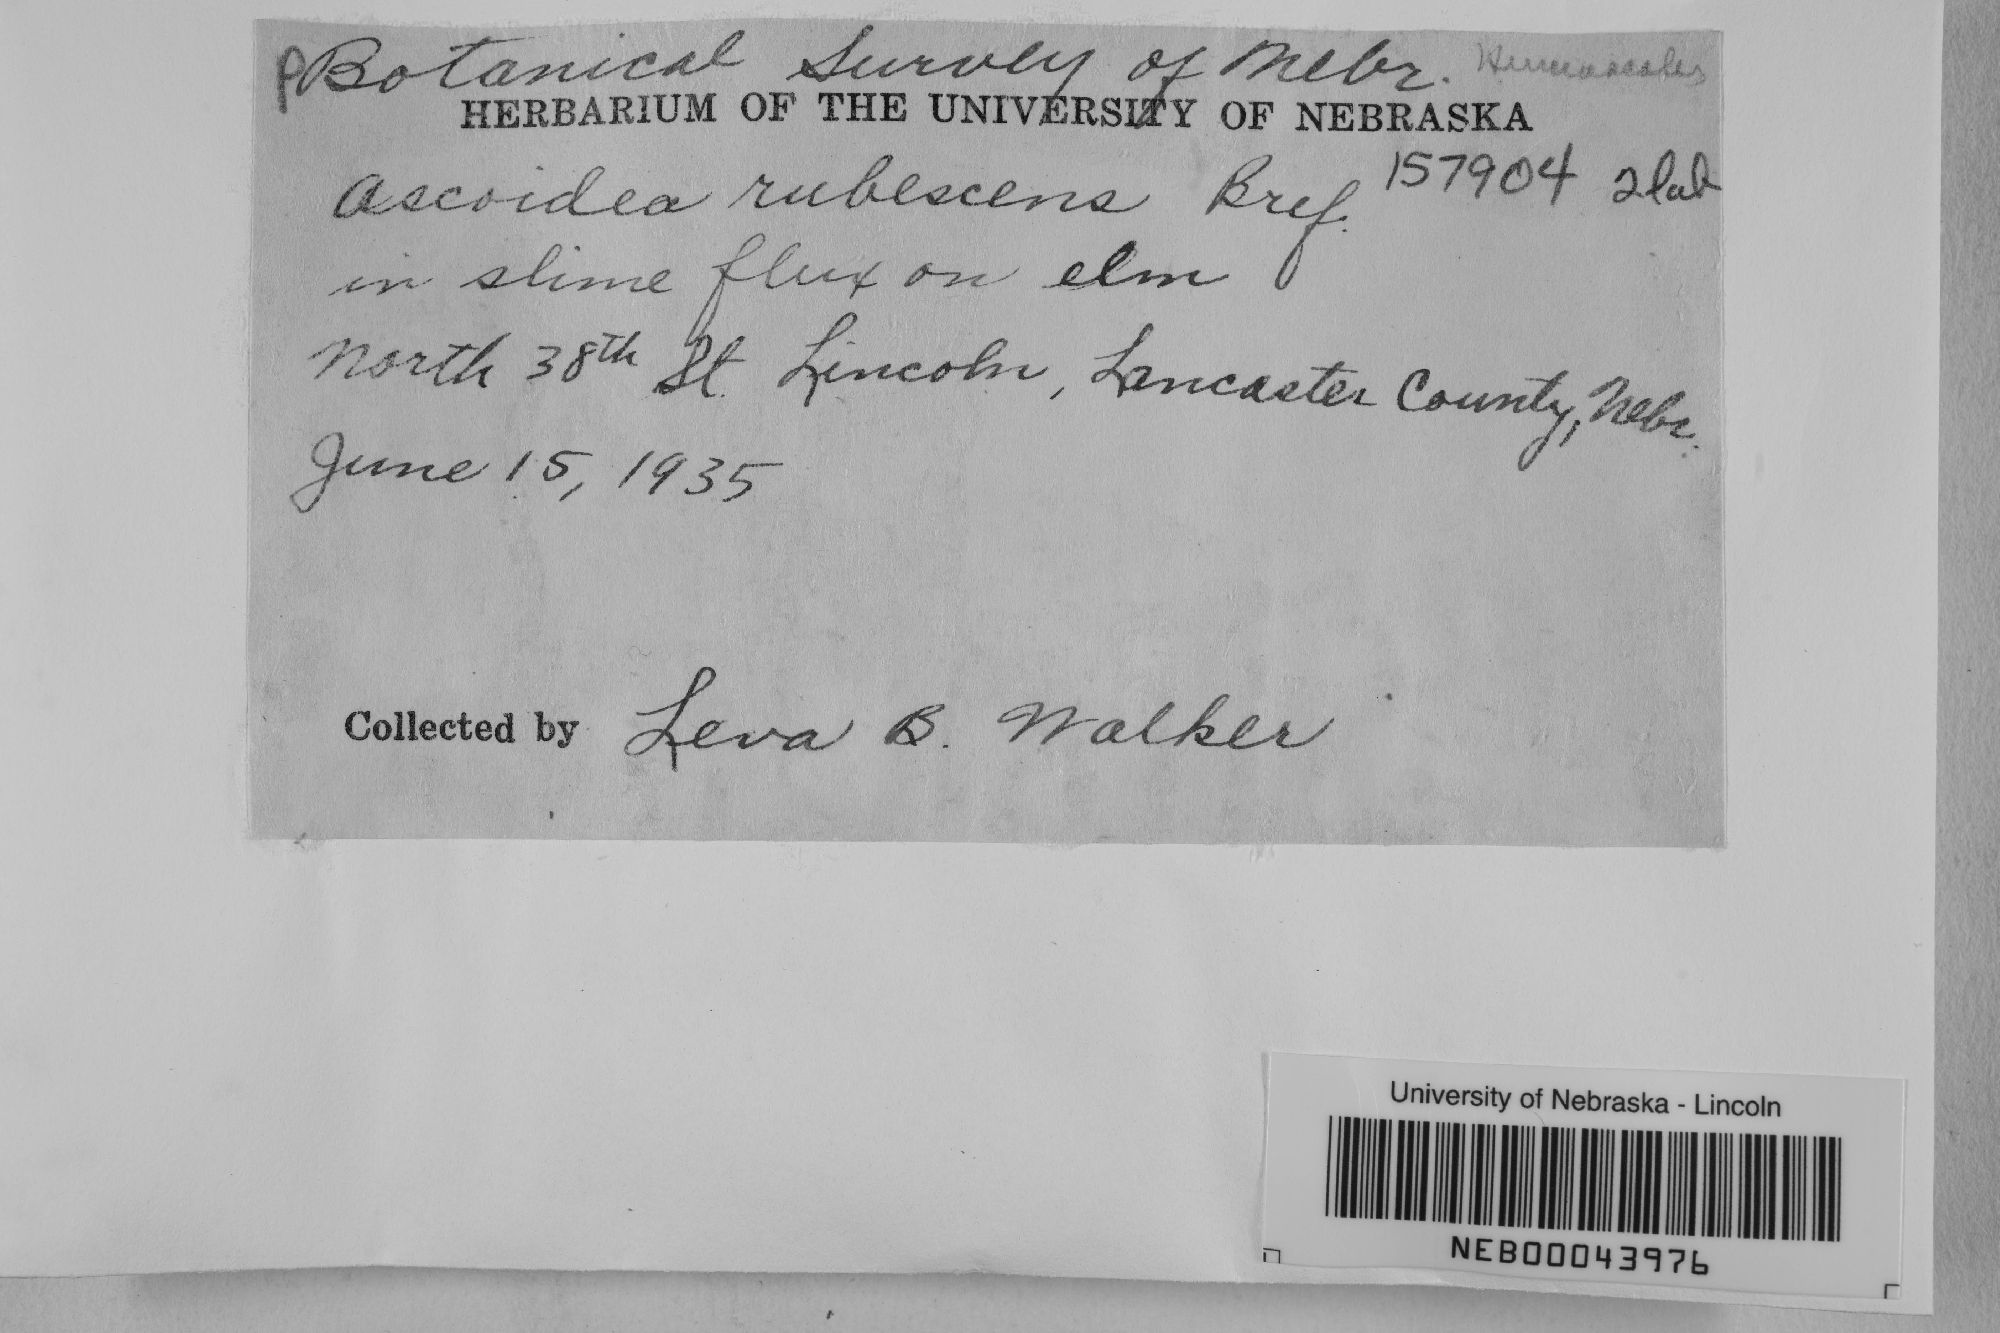 P Botanical Survey of Nebr. Hemiascales
HERBARIUM OF THE UNIVERSITY OF NEBRASKA
Ascoidea rubescens Bref. 157904 2lab
in slime flux on elm
North 38th St. Lincoln, Lancaster County, Nebr.
June 15, 1935
Collected by Leva B. Walker
University of Nebraska - Lincoln
NEB00043976